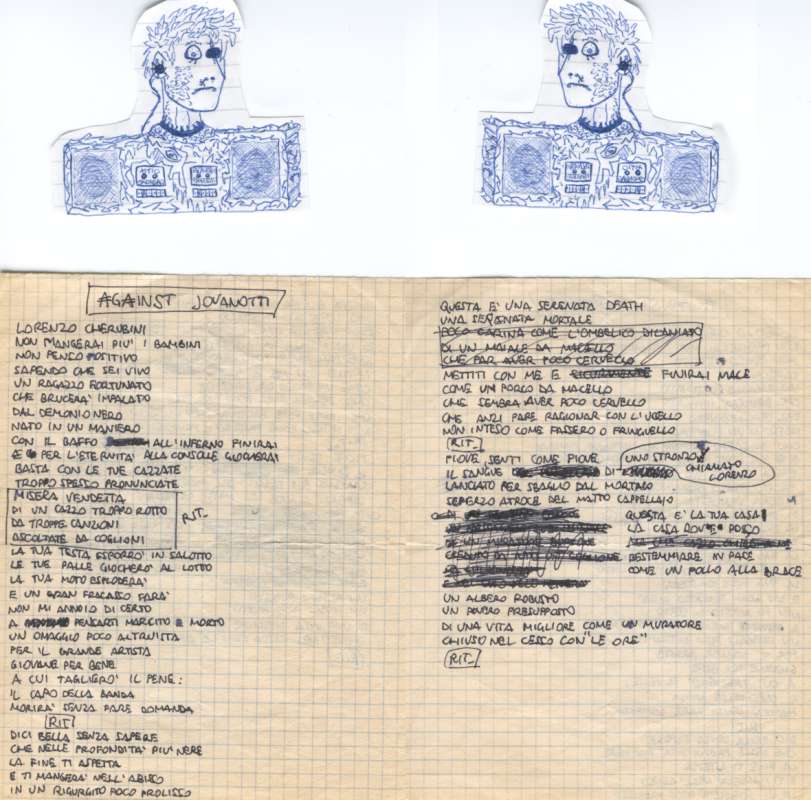 AGAINST JOVANOTTI
LORENZO CHERUBINI
NON MANGERAI PIU' I BAMBINI
NON PENSO POSITIVO
SAPENDO CHE SEI VIVO
UN RAGAZZO FORTUNATO
CHE BRUCERA' IMPALATO
DAL DEMONIO NERO
NATO IN UN MANIERO
CON IL BAFFO ALL'INFERNO FINIRAI
E PER L'ETERNITA' ALLA CONSOLLE GIOCHERAI
BASTA CON LE TUE CAZZATE
TROPPO SPESSO PRONUNCIATE
MISERA VENDETTA
DI UN CAZZO TROPPO ROTTO
DA TROPPE CANZONI
ASCOLTATE DA COGLIONI
RIT_
LA TUA TESTA ESPORRO' IN SALOTTO
LE TUE PALLE GIOCHERO' AL LOTTO
LA TUA MOTO ESPLODERA'
E UN GRAN FRACASSO FARA'
NON MI ANNOIO DI CERTO
A PENSARTI MARCITO E MORTO
UN OMAGGIO POCO ALTRUISTA
PER IL GRANDE ARTISTA
GIOVANE PER BENE
A CUI TAGLIERO' IL PENE:
IL CAPO DELLA BANDA
MORIRA' SENZA FARE DOMANDA
RIT
DICI BELLA SENZA SAPERE
CHE NELLE PROFONDITA' PIU' NERE
LA FINE TI ASPETTA
E TI MANGERA' NELL'ABISSO
IN UN RIGURGITO POCO PROLISSO
QUESTA E' UNA SERENATA DEATH
UNA SERENATA MORTALE
POCO CARINA COME L'OMBELICO DILANIATO
DI UN MAIALE DA MACELLO
CHE PAR AVER POCO CERVELLO
METTITI CON ME E SICURAMENTE FINIRAI MALE
COME UN PORCO DA MACELLO
CHE SEMBRA AVER POCO CERVELLO
CHE ANZI PARE RAGIONAR CON L'UCELLO
NON INTESO COME PASSERO O FRINGUELLO
RIT_
PIOVE SENTI COME PIOVE
IL SANGUE DI UNO STRONZO CHIAMATO LORENZO
LANCIATO PER SBAGLIO DAL MORTAIO
SCHERZO ATROCE DEL MATTO CAPPELLAIO
QUESTA E' LA TUA CASA
LA CASA DOVE POSSO
BESTEMMIARE IN PACE
COME UN POLLO ALLA BRACE
UN ALBERO ROBUSTO
UN POVERO PRESUPPOSTO
DI UNA VITA MIGLIORE COME UN MURATORE
CHIUSO NEL CESSO CON "LE ORE"
RIT_